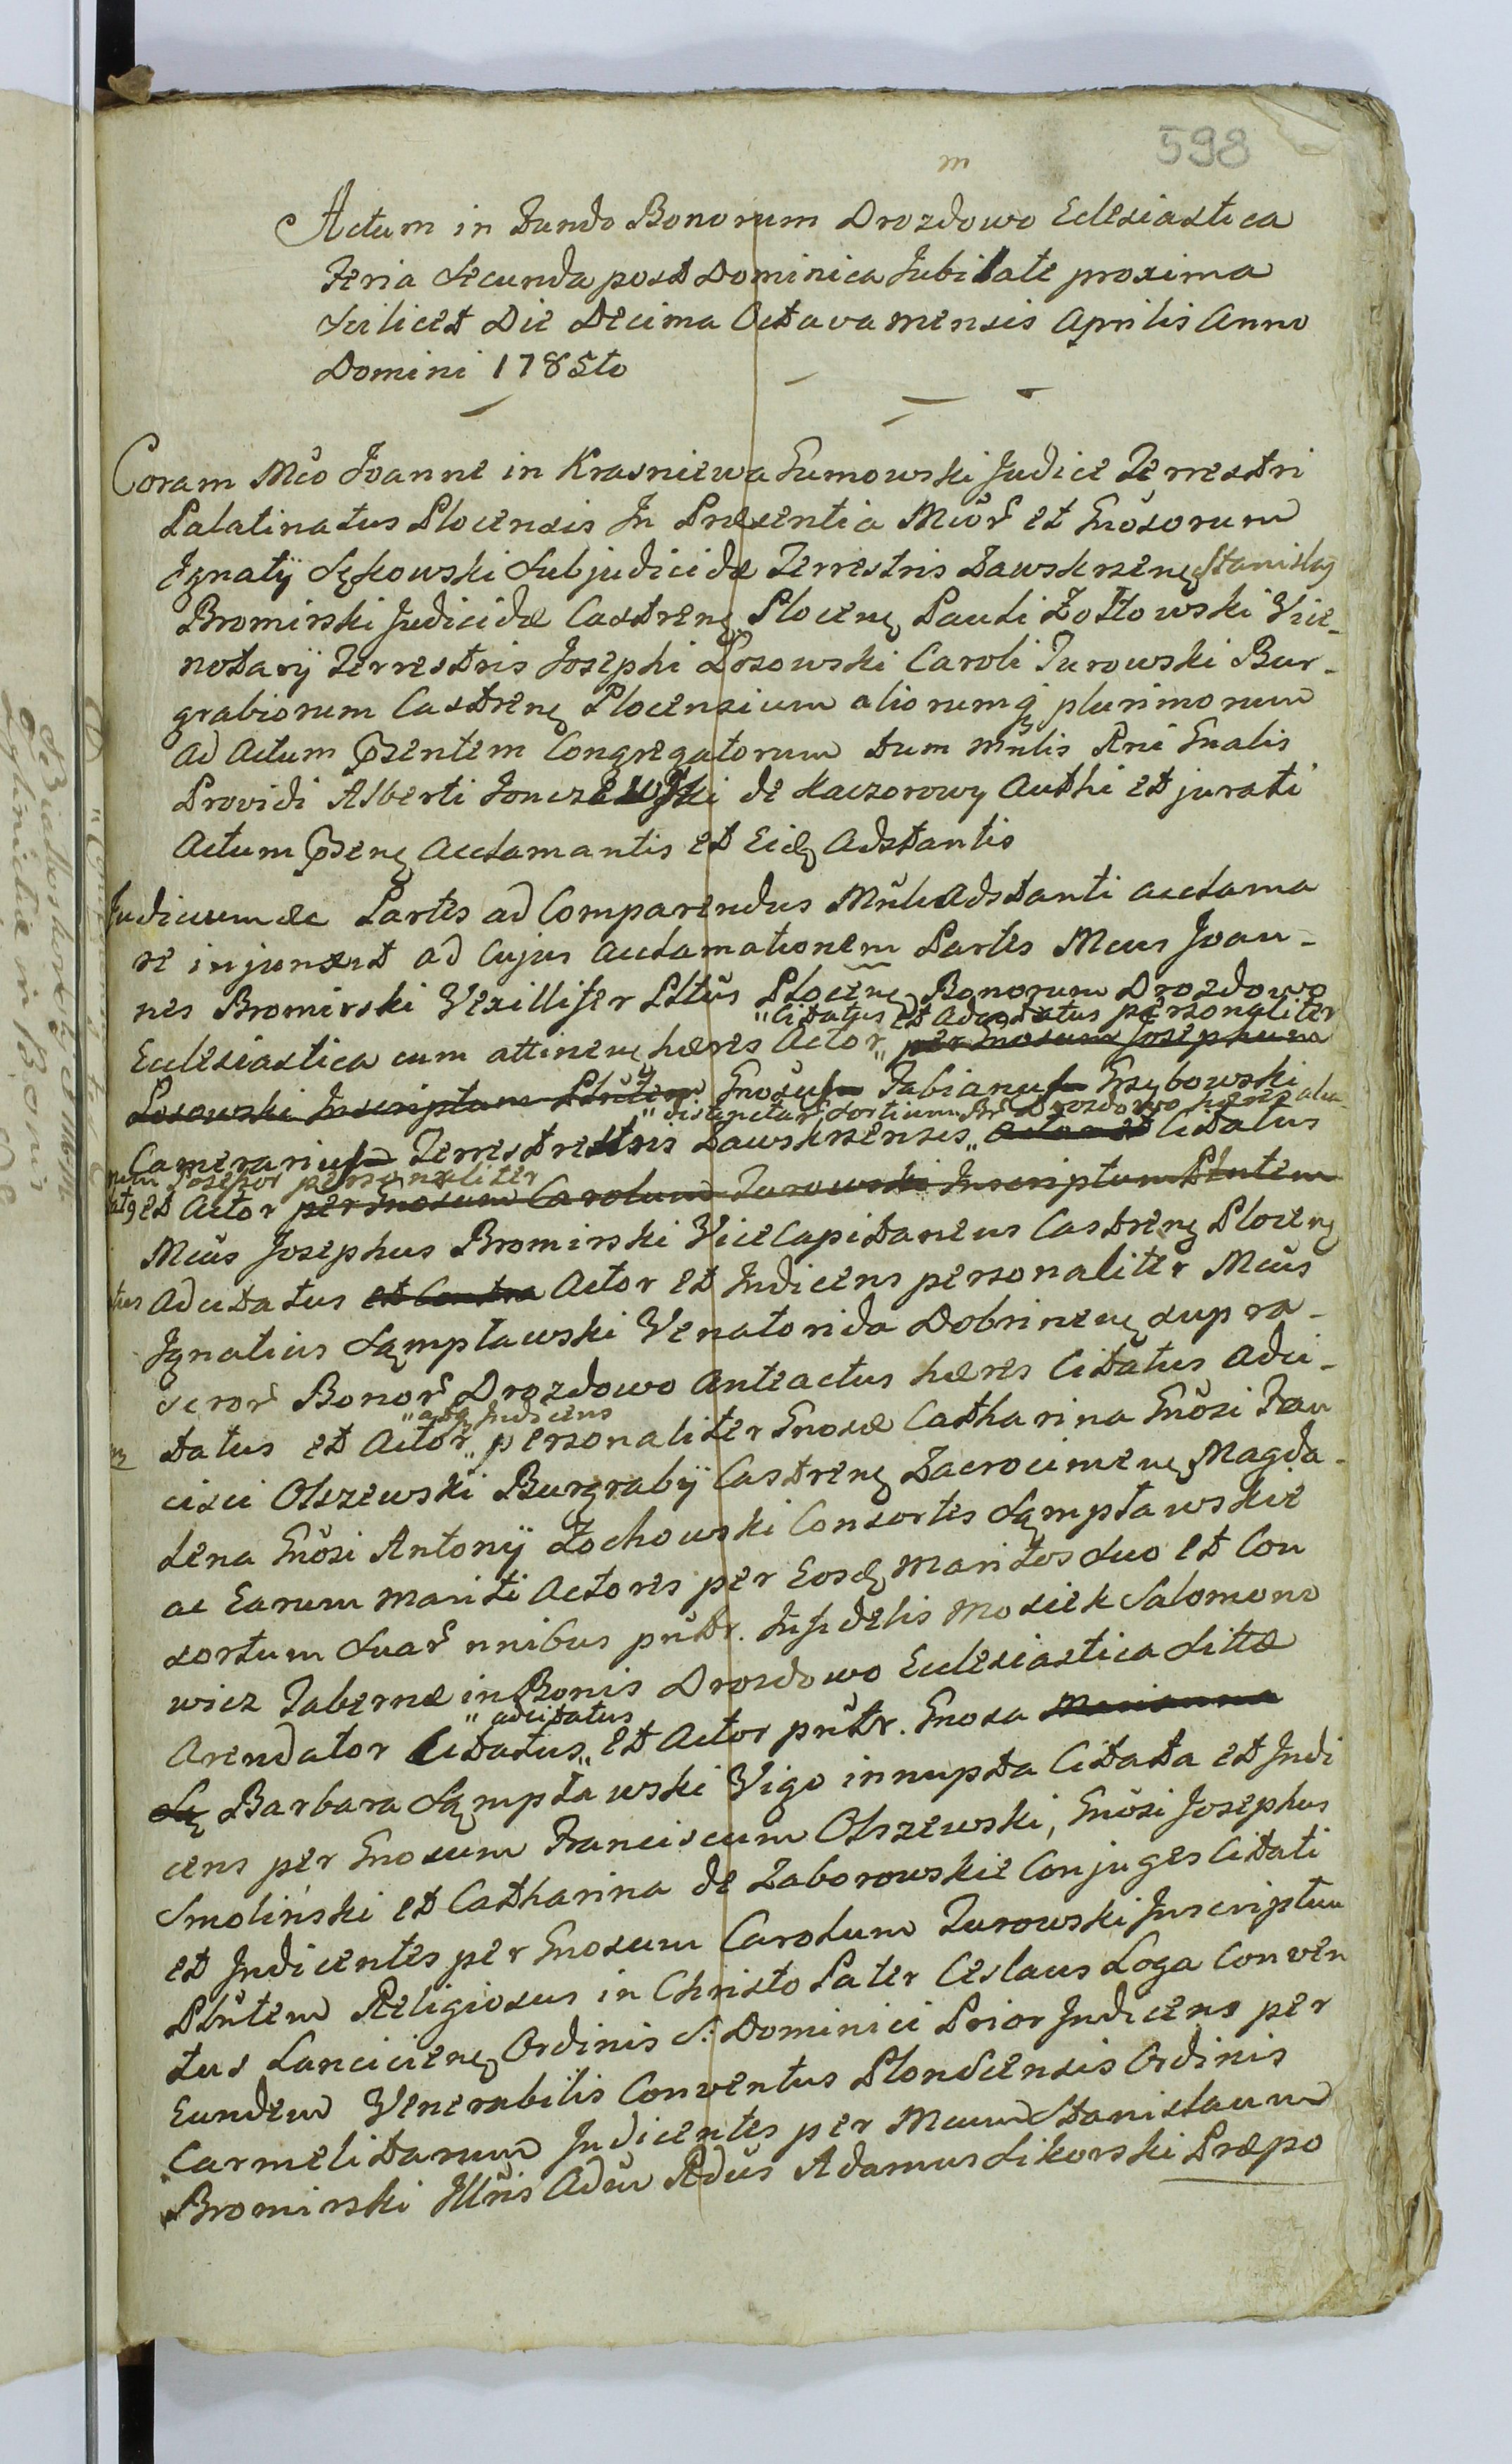 598
m
Actum in Fundo Bonorum Drozdowo Eclesiastica
Feria Secunda post Dominica Jubilate proxima
Scilicet Die Decima Octava mensis Aprilis Anno
Domini 1785to
Coram Mco Joanne in Krasniewa Gumowski Judice Terrestri
Palatinatus Plocensis In Præsentia Mcor et Gnosorum
Ignatij Sękowski Subjudicidæ Terrestris Zawskrzen Stanislai
Bromirski Judicidæ Castren Plocen Pauli Zołtowski Vice-
notarij Terrestris Josephi Losowski Caroli Turowski Bur-
grabiorum Castren Plocensium aliorumq plurimorum
ad Actum psentem Congregatorum tum mnlis Rni Gnalis
Providi Alberti Jonczewski de Kaczorowy Authi et jurati
Actum psen acclamantis et Eid Adstantis
Judicium &c Partes ad Comparendus Mnli Adstanti acclama
re injunxit ad Cujus acclamationem Partes Mcus Joan-
nes Bromirski Vexillifer Pltus Plocen Bonorum Drozdowo
"Citatus et Adcitatus personaliter
Ecclesiastica cum attinen hæres Actor" per Gnosum Josephum
Losowski Inscriptum Plntem Gnosus Fabianus Grzybowski
"distinctar Sortium in Drozdowo hæres alia-
Camerarius Terrestrestris Zawskrzensis" Actor et Citatus
rum Possesor personaliter
et Actor per Gnosum Carolum Turowski Inscriptum Plntem
Mcus Josephus Bromirski ViceCapitaneus Castren Plocen
Adcitatus et Contra Actor et Indicens personaliter Mcus
Ignatius Sęmpławski Venatorida Dobrinen supra-
scror Bonor Drozdowo Anteactus hæres Citatus Adci-
"atq Indicens
tatus et Actor" personaliter Gnosæ Catharina Gnosi Fran
cisci Olszewski Burgrabij Castren Zacrocimen, Magda-
lena Gnosi Antonij Żochowski Consortes Sęmpławskie
ac Earum mariti Actores per Eosd Maritos suo et Con
sortum Suar nnibus pntr. Infidelis Mosiek Salomono
wicz Tabernæ in Bonis Drozdowo Ecclesiastica Sittæ
"adcitatus
Arendator Citatus" et Actor pntr. Gnosa Marianna
Sę Barbara Sęmpławski Vigo innupta Citata et Indi
cens per Gnosum Franciscum Olszewski, Gnosi Josephus
Smoliński et Catharina de Zaborowskie Conjuges Citati
et Indicentes per Gnosum Carolum Turowski Inscriptum
Plntem Religiosus in Christo Pater Ceslaus Loga Conven
tus Lancicien Ordinis S: Dominici Prior Indicens per
Eundem Venerabilis Conventus Plonscensis Ordinis
Carmelitarum Indicentes per Mcum Stanislaum
Bromirski Illris Adm Rdus Adamus Sikorski Præpo